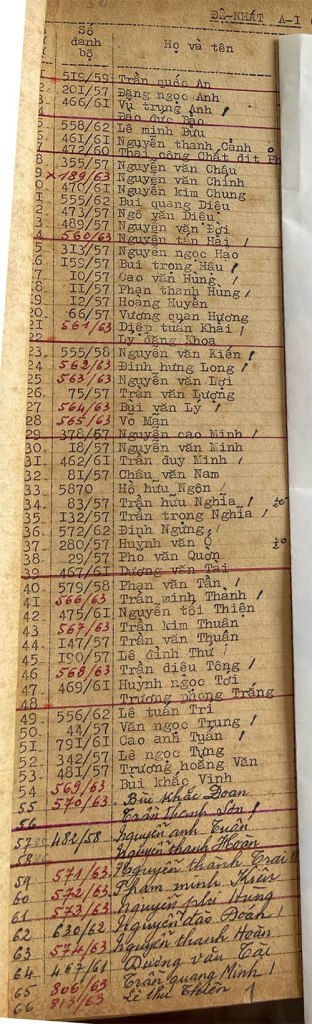 ĐỆ-NHẤT A-I
Số danh bộ Họ và tên
519/59 Trần quốc An
201/57 Đặng ngọc Anh
466/61 Vũ trung Anh /
Đào đức Bảo
5 558/62 Lê minh Bửu
6 461/61 Nguyễn thanh Cảnh
7 472/60 Thái công Chất
8 355/57 Nguyễn văn Chậu
9 x 189/63 Nguyễn văn Chính
10 470/61 Nguyễn kim Chung
11 555/62 Bùi quang Diệu
12 473/57 Ngô văn Diệu
13 489/57 Nguyễn văn Đợi
14 560/63 Nguyễn tấn Hải /
15 313/57 Nguyễn ngọc Hạo
16 159/57 Bùi trọng Hậu /
17 10/57 Cao văn Hùng /
18 11/57 Phan thanh Hùng /
19 12/57 Hoàng Huyền
20 66/57 Vương quan Hương
21 561/63 Diệp tuấn Khải /
22 Lý đăng Khoa
23 555/58 Nguyễn văn Kiển /
24 562/63 Đinh hưng Long /
25 563/63 Nguyễn văn Lợi
26 75/57 Trần văn Lượng
27 564/63 Bùi văn Lý /
28 565/63 Võ Mẫn
29 378/57 Nguyễn cao Minh /
30 18/57 Nguyễn văn Minh
31 462/61 Trần duy Minh /
32 81/57 Châu văn Nam
33 5870 Hồ hữu Ngôn /
34 83/57 Trần hữu Nghĩa /
35 132/57 Trần trọng Nghĩa /
36 572/62 Đinh Ngừng /
37 280/57 Huỳnh văn Ô
38 29/57 Pho văn Quơn
39 467/61 Dương văn Tài
40 579/58 Phan văn Tần /
41 566/63 Trần minh Thành /
42 475/61 Nguyễn tôi Thiện
43 567/63 Trần kim Thuân
44 147/57 Trần văn Thuần
45 190/57 Lê đình Thư /
46 568/63 Trần diêu Tông /
47 469/61 Huỳnh ngọc Tơi
48 Trương phong Trắng
49 556/62 Lê tuấn Trí
50 44/57 Văn ngọc Trung /
51 791/61 Cao anh Tuấn /
52 342/57 Lê ngọc Tựng
53 481/57 Trương hoàng Văn
54 569/63 Bùi khắc Vinh
55 570/63 Bùi khắc Đoan
56 Trần thanh Sơn /
57 482/58 Nguyễn anh Tuấn
58 Nguyễn thanh Hoàn
59 571/63 Nguyễn thành Trai
60 572/63 Phạm minh Kiên
61 573/63 Nguyễn phi Hùng
62 630/62 Nguyễn đào Đoan /
63 574/63 Nguyễn thanh Hoàn
64 467/61 Dương văn Tài
65 806/63 Trần quang Minh /
66 813/63 Lê thu Thiên